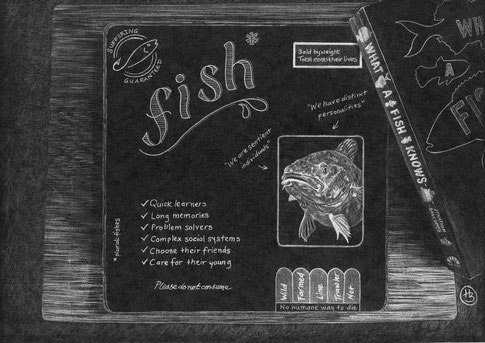 SUFFERING
GUARANTEED
fish*
Sold by weight
Total cost: their lives
"We have distinct
personalities"
"We are sentient
individuals"
✓ Quick learners
✓ Long memories
✓ Problem solvers
✓ Complex social systems
✓ Choose their friends
✓ Care for their young
*plural: fishes
Please do not consume
Wild
Farmed
Line
Trawler
Net
No humane way to die
WHAT A FISH KNOWS
WH
A